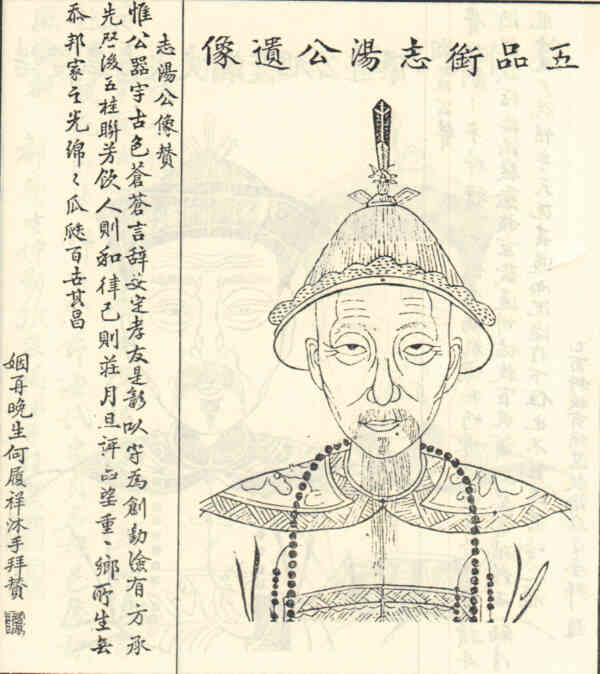 五品銜志湯公遺像
志湯公像贊
惟公器宇古色蒼蒼言辭安定孝友是彰以守為創勤儉有方承
先啓後五桂聯芳飲人則和律己則莊月旦評正望重〻鄉所生無
忝邦家之光綿〻瓜瓞百世其昌
姻再晚生何履祥沐手拜贊